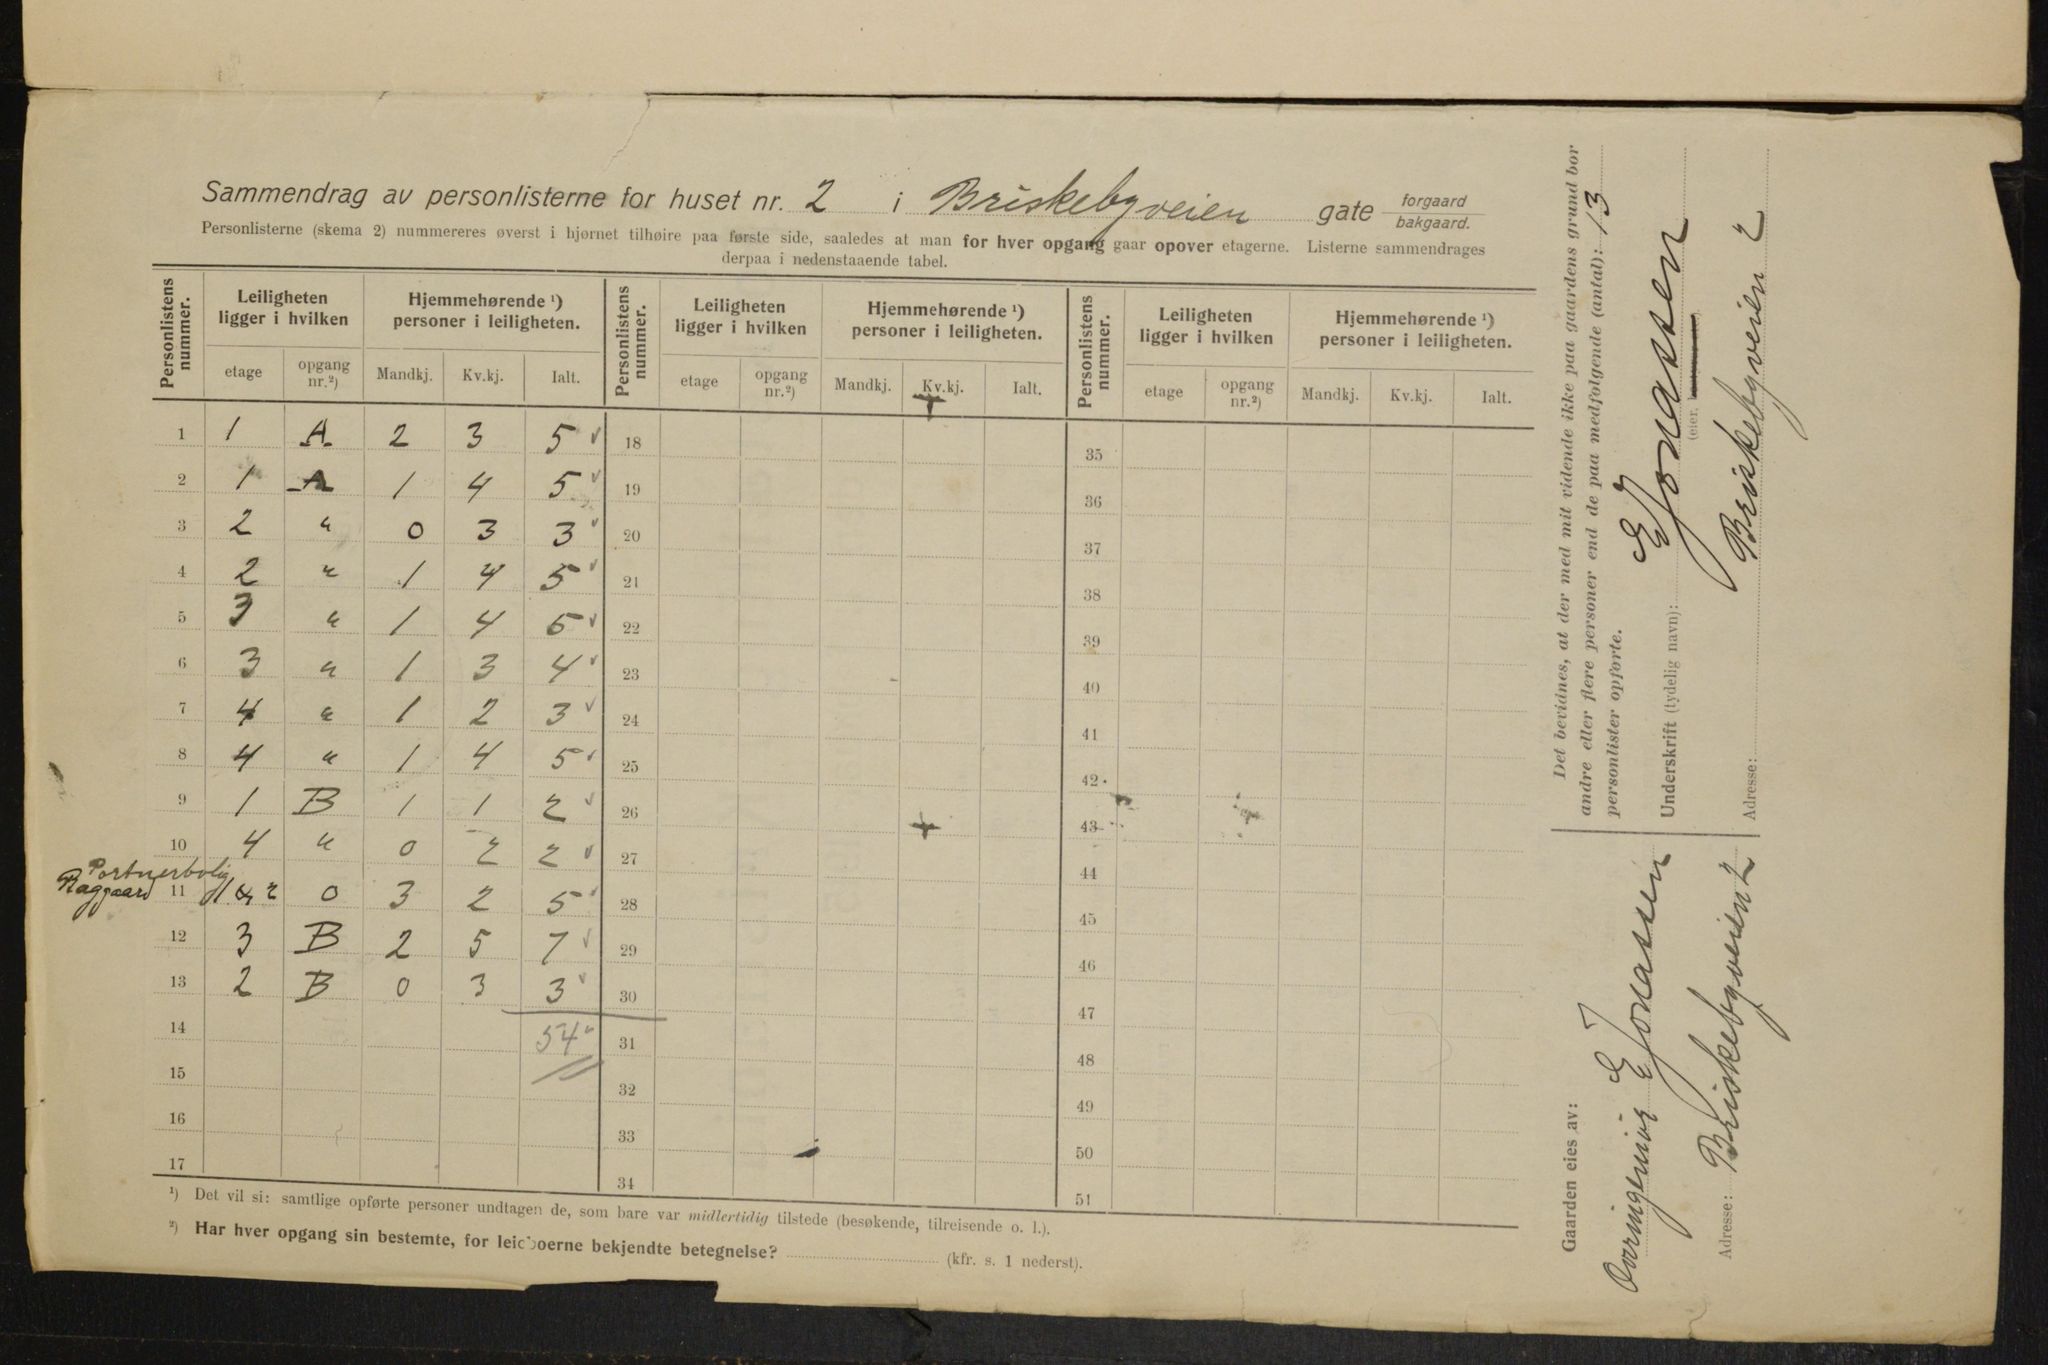 Sammendrag av personlisterne for huset nr. 2 i Briskebyveien gate forgaard bakgaard.
Personlisterne (skema 2) nummereres øverst i hjørnet tilhøire paa første side, saaledes at man for hver opgang gaar opover etagerne. Listerne sammendrages
derpaa i nedenstaaende tabel.
Personlistens nummer. Leiligheten ligger i hvilken Hjemmehørende ¹) personer i leiligheten. Personlistens nummer. Leiligheten ligger i hvilken Hjemmehørende ¹) personer i leiligheten. Personlistens nummer. Leiligheten ligger i hvilken Hjemmehørende ¹) personer i leiligheten.
etage opgang nr.²) Mandkj. Kv.kj. Ialt. etage opgang nr.²) Mandkj. Kv.kj. Ialt. etage opgang nr.²) Mandkj. Kv.kj. Ialt.
1 1 A 2 3 5 18 35
2 1 A 1 4 5 19 36
3 2 " 0 3 3 20 37
4 2 " 1 4 5 21 38
5 3 " 1 4 5 22 39
6 3 " 1 3 4 23 40
7 4 " 1 2 3 24 41
8 4 " 1 4 5 25 42
9 1 B 1 1 2 26 43
10 4 " 0 2 2 27 44
Portnerbolig
11 1 & 2 0 3 2 5 28 45
12 3 B 2 5 7 29 46
13 2 B 0 3 3 30 47
14 54 31 48
15 32 49
16 33 50
17 34 51
¹) Det vil si: samtlige opførte personer undtagen de, som bare var midlertidig tilstede (besøkende, tilreisende o. l.).
²) Har hver opgang sin bestemte, for leieboerne bekjendte betegnelse? (kfr. s. 1 nederst).
Det bevidnes, at der med mit vidende ikke paa gaardens grund bor
andre eller flere personer end de paa medfølgende (antal): 13
personlister opførte.
Underskrift (tydelig navn): E Jonassen
(eier,
Adresse: Briskebyveien 2
Gaarden eies av:
Overingeniør E Jonassen
Adresse: Briskebyveien 2